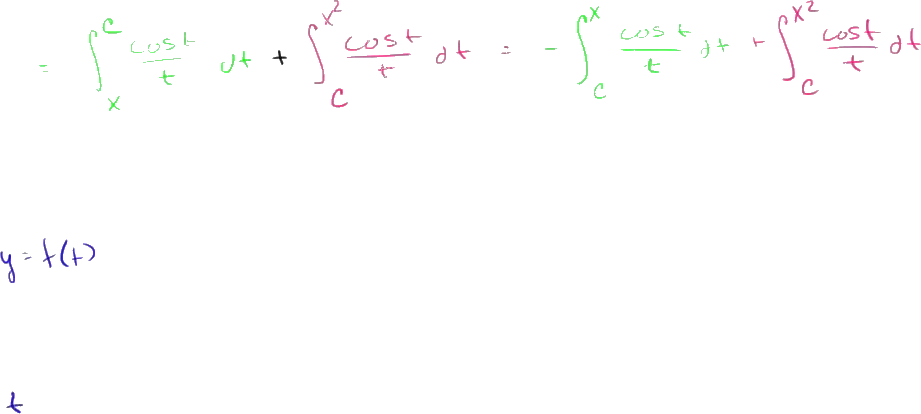 = ∫_x^c cos t / t dt + ∫_c^{x^2} cos t / t dt = - ∫_c^x cos t / t dt + ∫_c^{x^2} cos t / t dt
y = f(t)
t